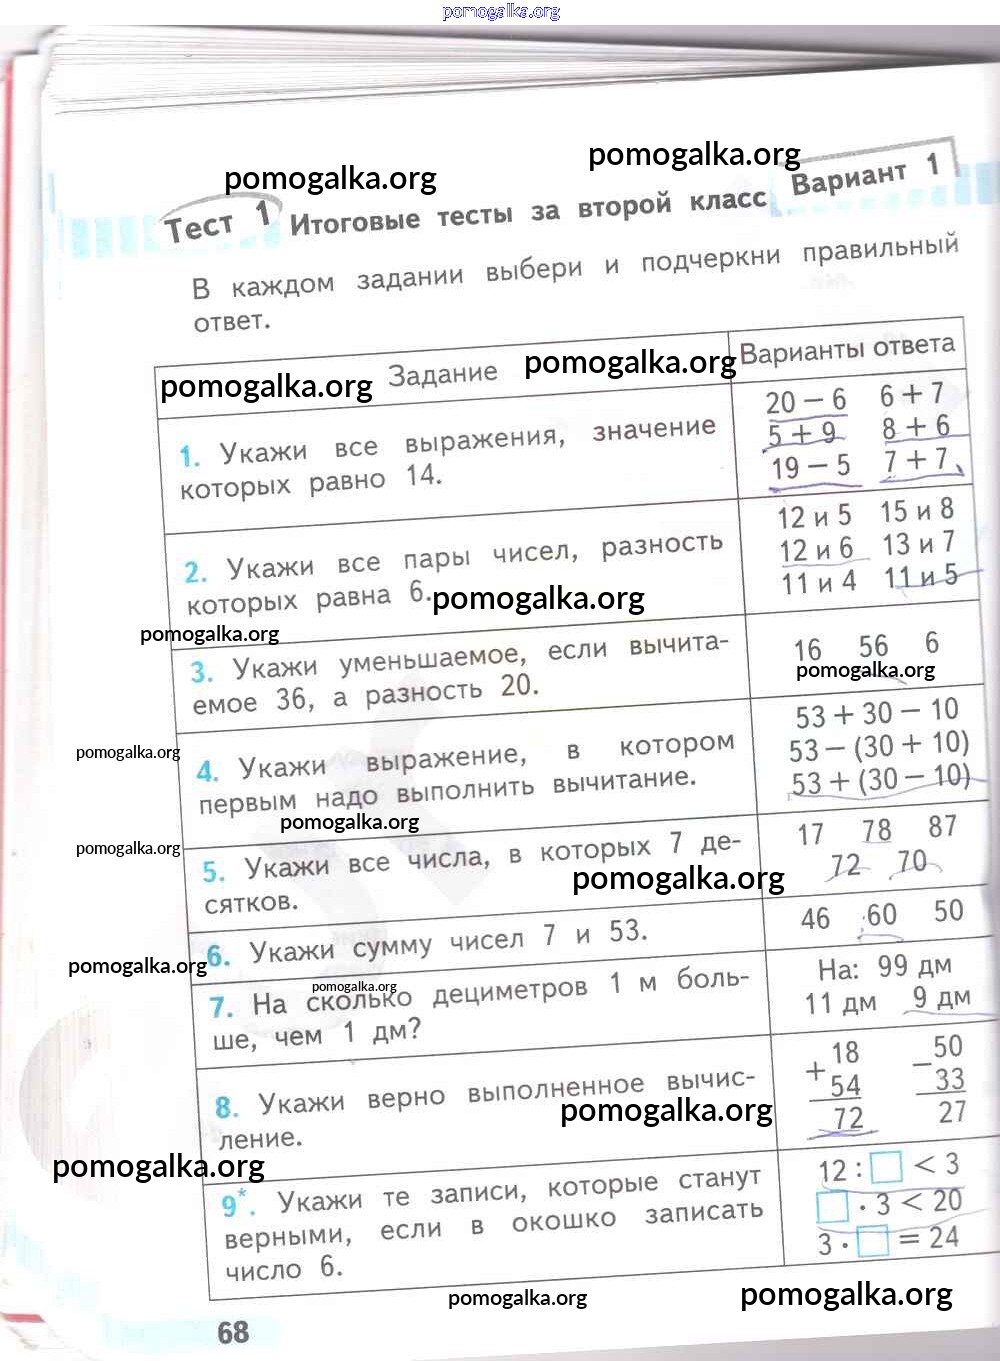 pomogalka.org
pomogalka.org
pomogalka.org
Тест 1 Итоговые тесты за второй класс Вариант 1
В каждом задании выбери и подчеркни правильный
ответ.
pomogalka.org Задание pomogalka.org Варианты ответа
1. Укажи все выражения, значение
которых равно 14.
20 − 6 6 + 7
5 + 9 8 + 6
19 − 5 7 + 7
2. Укажи все пары чисел, разность
которых равна 6.
pomogalka.org
12 и 5 15 и 8
12 и 6 13 и 7
11 и 4 11 и 5
pomogalka.org
3. Укажи уменьшаемое, если вычита-
емое 36, а разность 20.
16 56 6
pomogalka.org
pomogalka.org
4. Укажи выражение, в котором
первым надо выполнить вычитание.
53 + 30 − 10
53 − (30 + 10)
53 + (30 − 10)
pomogalka.org
pomogalka.org
5. Укажи все числа, в которых 7 де-
сятков.
pomogalka.org
17 78 87
72 70
6. Укажи сумму чисел 7 и 53.
46 60 50
pomogalka.org
pomogalka.org
7. На сколько дециметров 1 м боль-
ше, чем 1 дм?
На: 99 дм
11 дм 9 дм
8. Укажи верно выполненное вычис-
ление.
pomogalka.org
+ 18 − 50
54 33
72 27
pomogalka.org
9*. Укажи те записи, которые станут
верными, если в окошко записать
число 6.
12 : □ < 3
□ · 3 < 20
3 · □ = 24
pomogalka.org
pomogalka.org
68